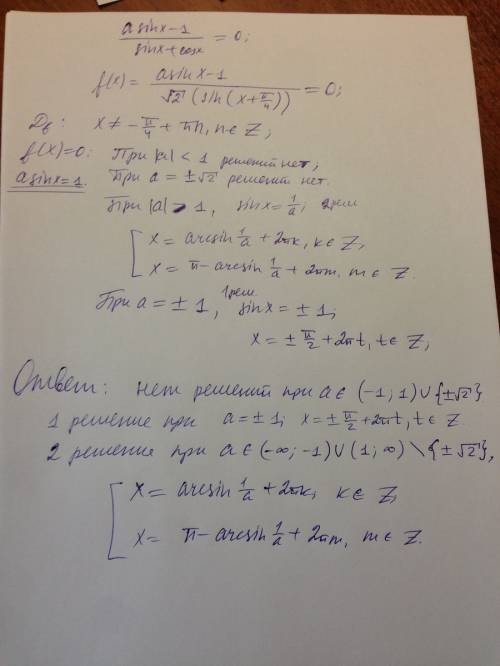 (a sin x - 1)/(sin x + cos x) = 0;
f(x) = (a sin x - 1)/(√2 (sin(x + π/4))) = 0;
D_f: x ≠ -π/4 + πn, n ∈ Z;
f(x)=0: При |a| < 1 решений нет;
a sin x = 1. При a = ±√2 решений нет.
При |a| > 1, sin x = 1/a; 2 реш
[ x = arcsin 1/a + 2πk, k ∈ Z,
x = π - arcsin 1/a + 2πm, m ∈ Z.
При a = ± 1, 1 реш sin x = ± 1,
x = ± π/2 + 2πt, t ∈ Z,
Ответ: нет решений при a ∈ (-1; 1) ∪ {±√2}
1 решение при a = ± 1; x = ± π/2 + 2πt, t ∈ Z.
2 решение при a ∈ (-∞; -1) ∪ (1; ∞) \ {±√2},
[ x = arcsin 1/a + 2πk, k ∈ Z,
x = π - arcsin 1/a + 2πm, m ∈ Z.